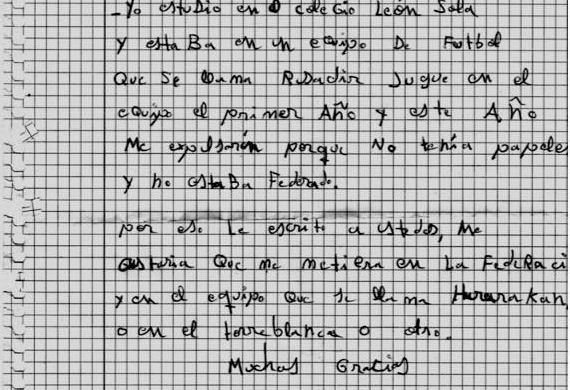 - Yo estudio en el colegio León Sola
y estaBa en un equipo De Futbol
Que Se llama Jugue en el
equipo el primer Año y este Año
Me expulsaron porque No tenía papeles
y no estaBa Federado.
por eso Le escrito a ustedes, Me
Gustaria Que me metiera en La Federaci
y en el equipo Que se llama Hurarakan
o en el torreblanca o otro.
Muchas Gracias